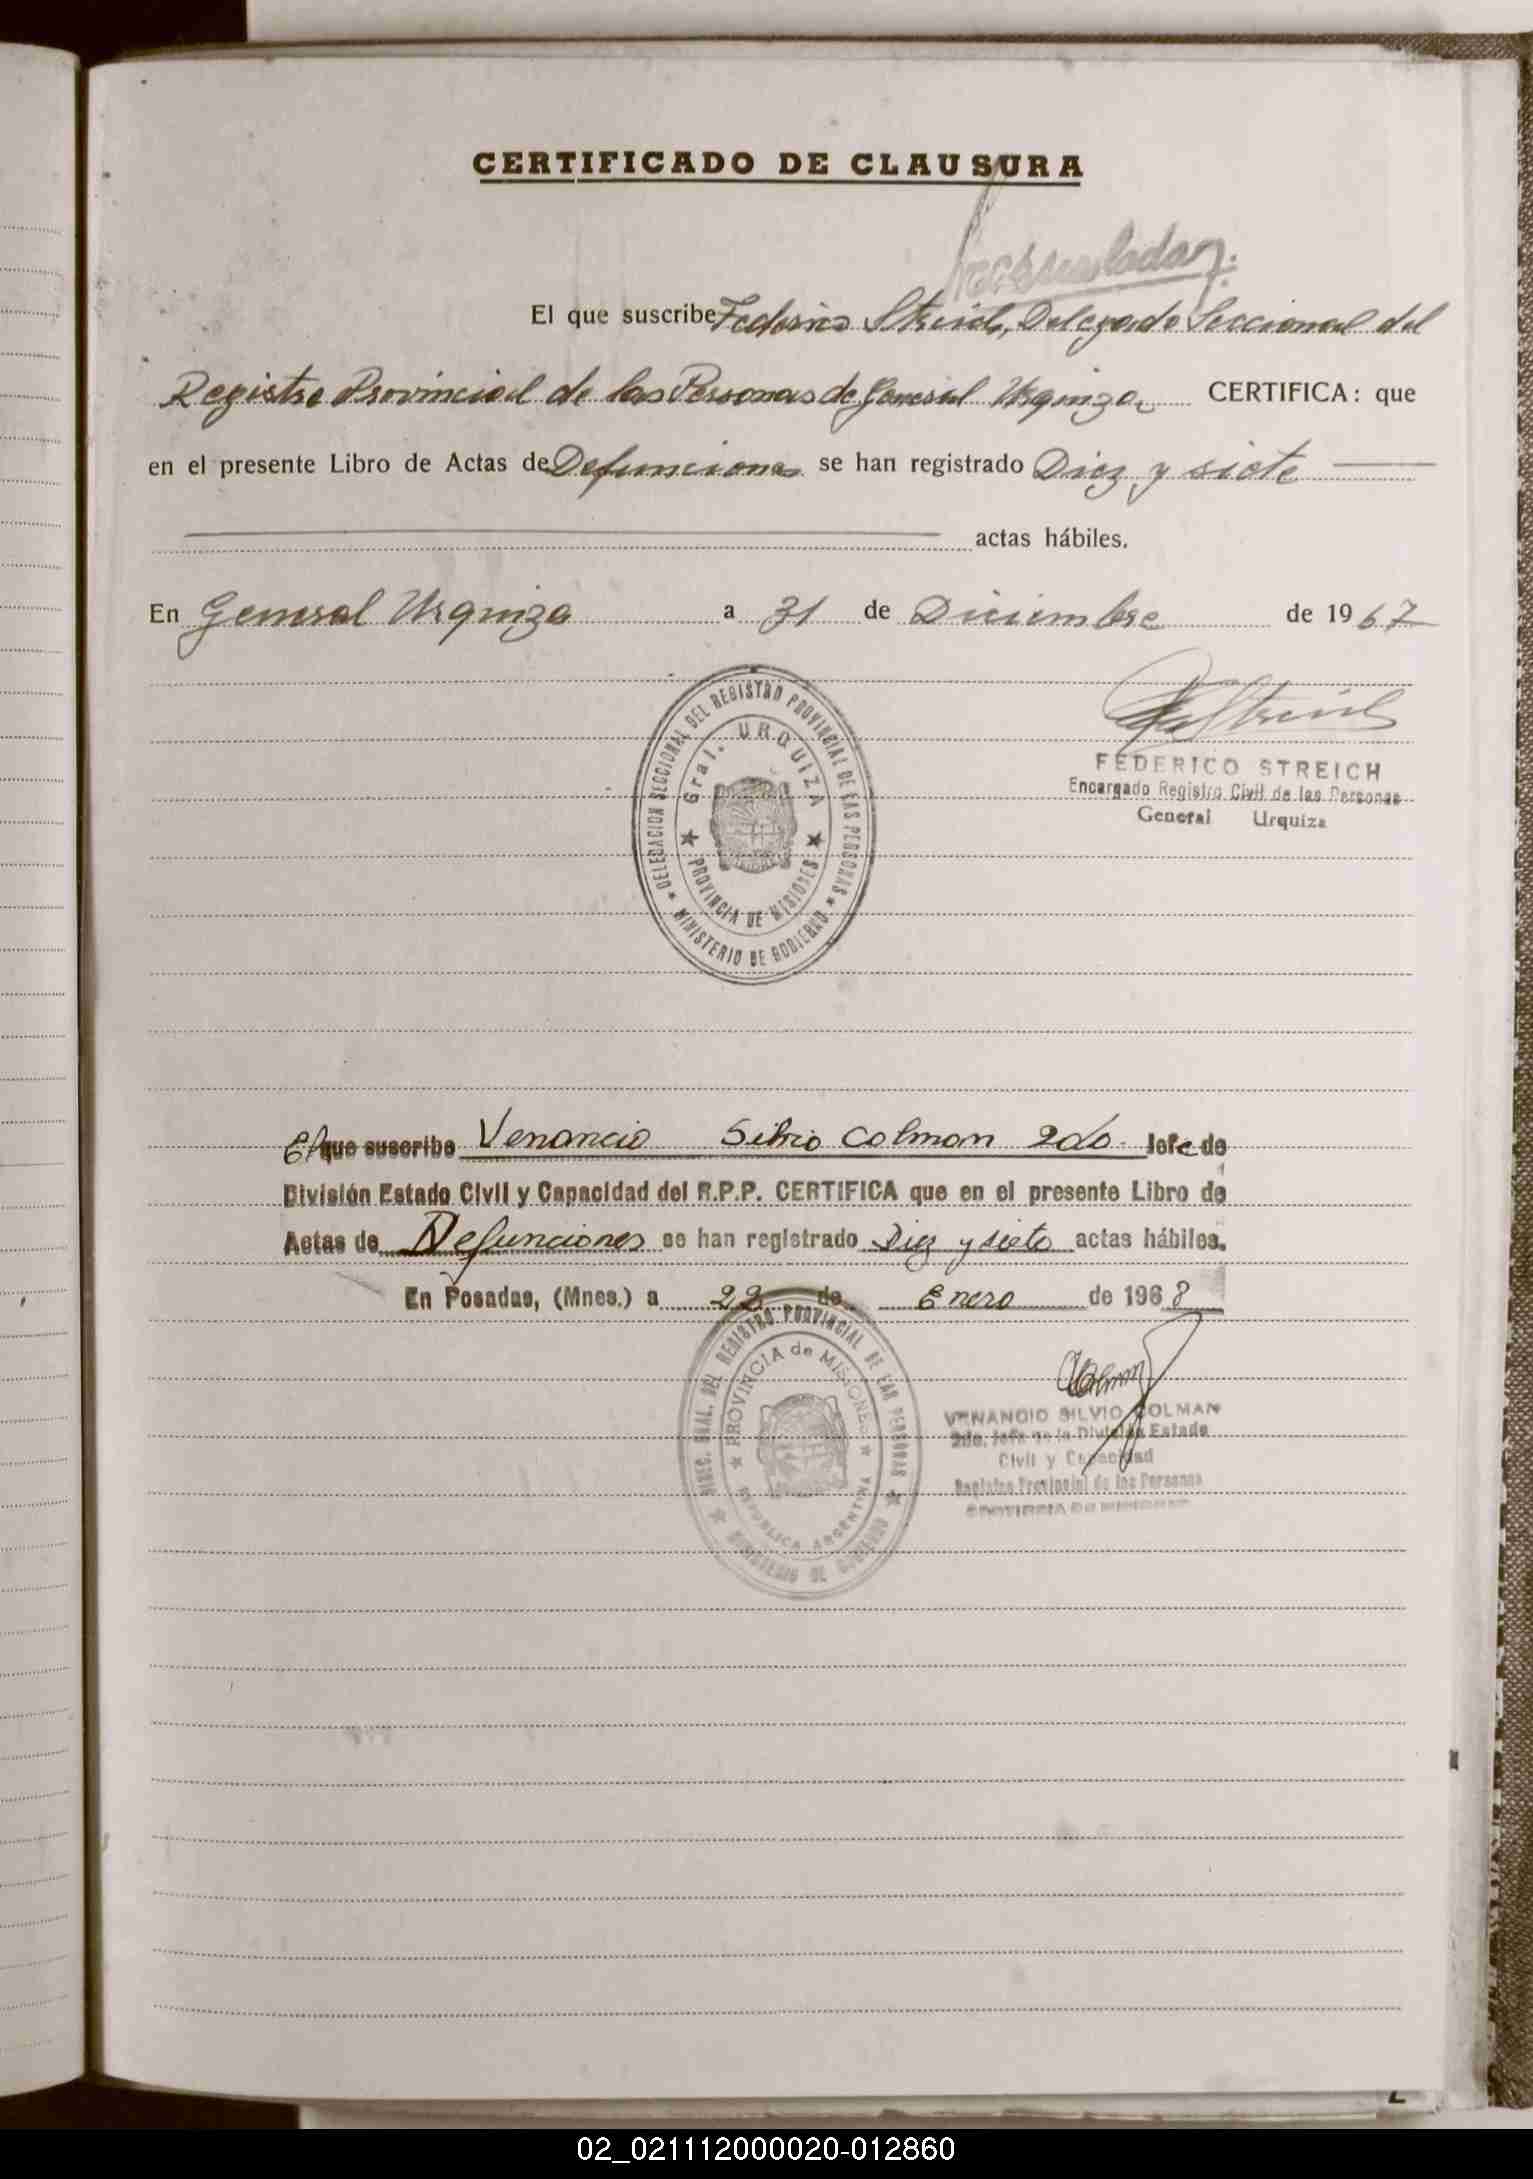 CERTIFICADO DE CLAUSURA
El que suscribe Federico Streich, Delegado Seccional del
Registro Provincial de las Personas de General Urquiza, CERTIFICA: que
en el presente Libro de Actas de Defunciones se han registrado Diez y siete
actas hábiles.
En General Urquiza a 31 de Diciembre de 1967
DELEGACION SECCIONAL DEL REGISTRO PROVINCIAL DE LAS PERSONAS
★ MINISTERIO DE GOBIERNO ★
Gral. URQUIZA
★ PROVINCIA DE MISIONES ★
FStreich
FEDERICO STREICH
Encargado Registro Civil de las Personas
General Urquiza
El que suscribe Venancio Silvio Colman 2do. Jefe de
División Estado Civil y Capacidad del R.P.P. CERTIFICA que en el presente Libro de
Actas de Defunciones se han registrado Diez y siete actas hábiles.
En Posadas, (Mnes.) a 22 de Enero de 1968
DIREC. GRAL. DEL REGISTRO PROVINCIAL DE LAS PERSONAS
★ MINISTERIO DE GOBIERNO ★
★ PROVINCIA de MISIONES ★
REPUBLICA ARGENTINA
VColman
VENANCIO SILVIO COLMAN
2do. Jefe de la División Estado
Civil y Capacidad
Registro Provincial de las Personas
PROVINCIA DE MISIONES
02_021112000020-012860